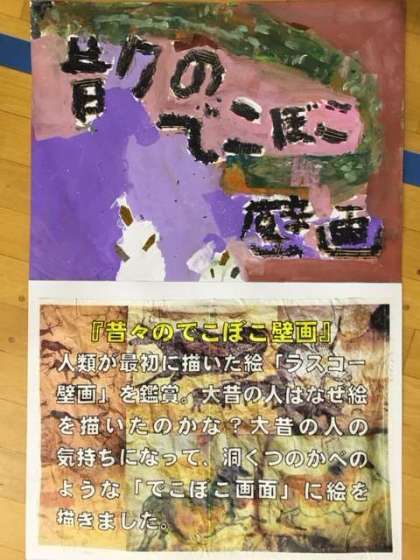 昔々の
でこぼこ
壁画
『昔々のでこぼこ壁画』
人類が最初に描いた絵「ラスコー
壁画」を鑑賞。大昔の人はなぜ絵
を描いたのかな？大昔の人の
気持ちになって、洞くつのかべの
ような「でこぼこ画面」に絵を
描きました。